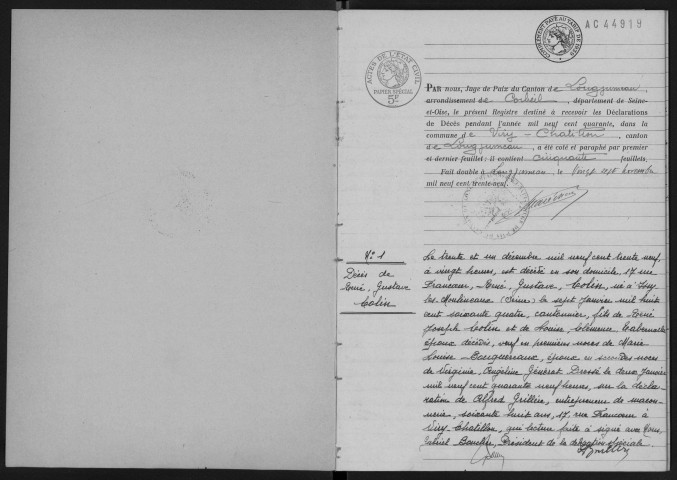 AC 44919
COMPLÉMENT PAYÉ AU TARIF DE 1939
ACTES DE L'ÉTAT CIVIL
PAPIER SPÉCIAL
5F
PAR nous, Juge de Paix du Canton de Longjumeau,
arrondissement de Corbeil, département de Seine-
et-Oise, le présent Registre destiné à recevoir les Déclarations
de Décès pendant l'année mil neuf cent quarante, dans la
commune de Viry-Chatillon, canton
de Longjumeau, a été coté et paraphé par premier
et dernier feuillet : il contient cinquante feuillets.
Fait double à Longjumeau le Vingt sept novembre
mil neuf cent trente-neuf.
No 1
Décès de
René, Gustave
Colin
Le trente et un décembre mil neuf cent trente neuf,
à vingt heures, est décédé en son domicile, 17 rue
Francoeur, René, Gustave, Colin, né à Issy
les Moulineaux (Seine) le sept Janvier mil huit
cent soixante quatre, cantonnier, fils de René
Joseph Colin et de Louise, Clémence
époux décédés, veuf en premières noces de Marie
Louise époux en secondes noces
de Virginie, Angeline Dressé le deux Janvier
mil neuf cent quarante neuf heures, sur la décla-
ration de Alfred Grillère, entrepreneur de maçon-
nerie, soixante huit ans, 17, rue Francoeur à
Viry-Chatillon, qui lecture faite a signé avec Nous,
Président de la délégation spéciale